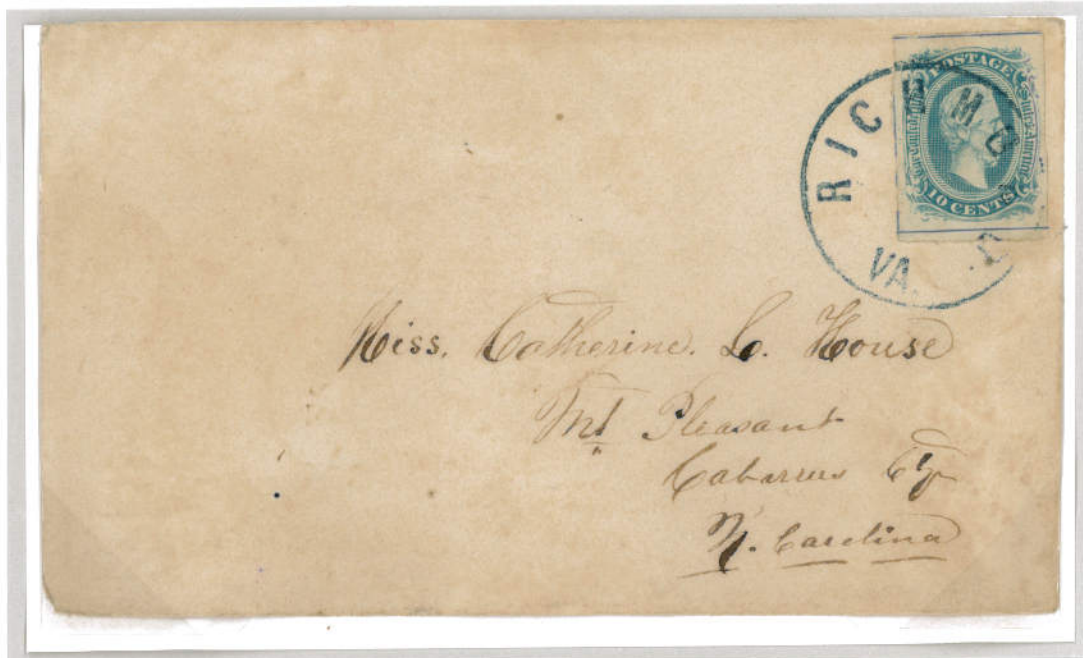 POSTAGE
10 CENTS
RICHMO D
VA.
Miss. Catherine. L. House
Mt Pleasant
Cabarrus Cty
N. Carolina